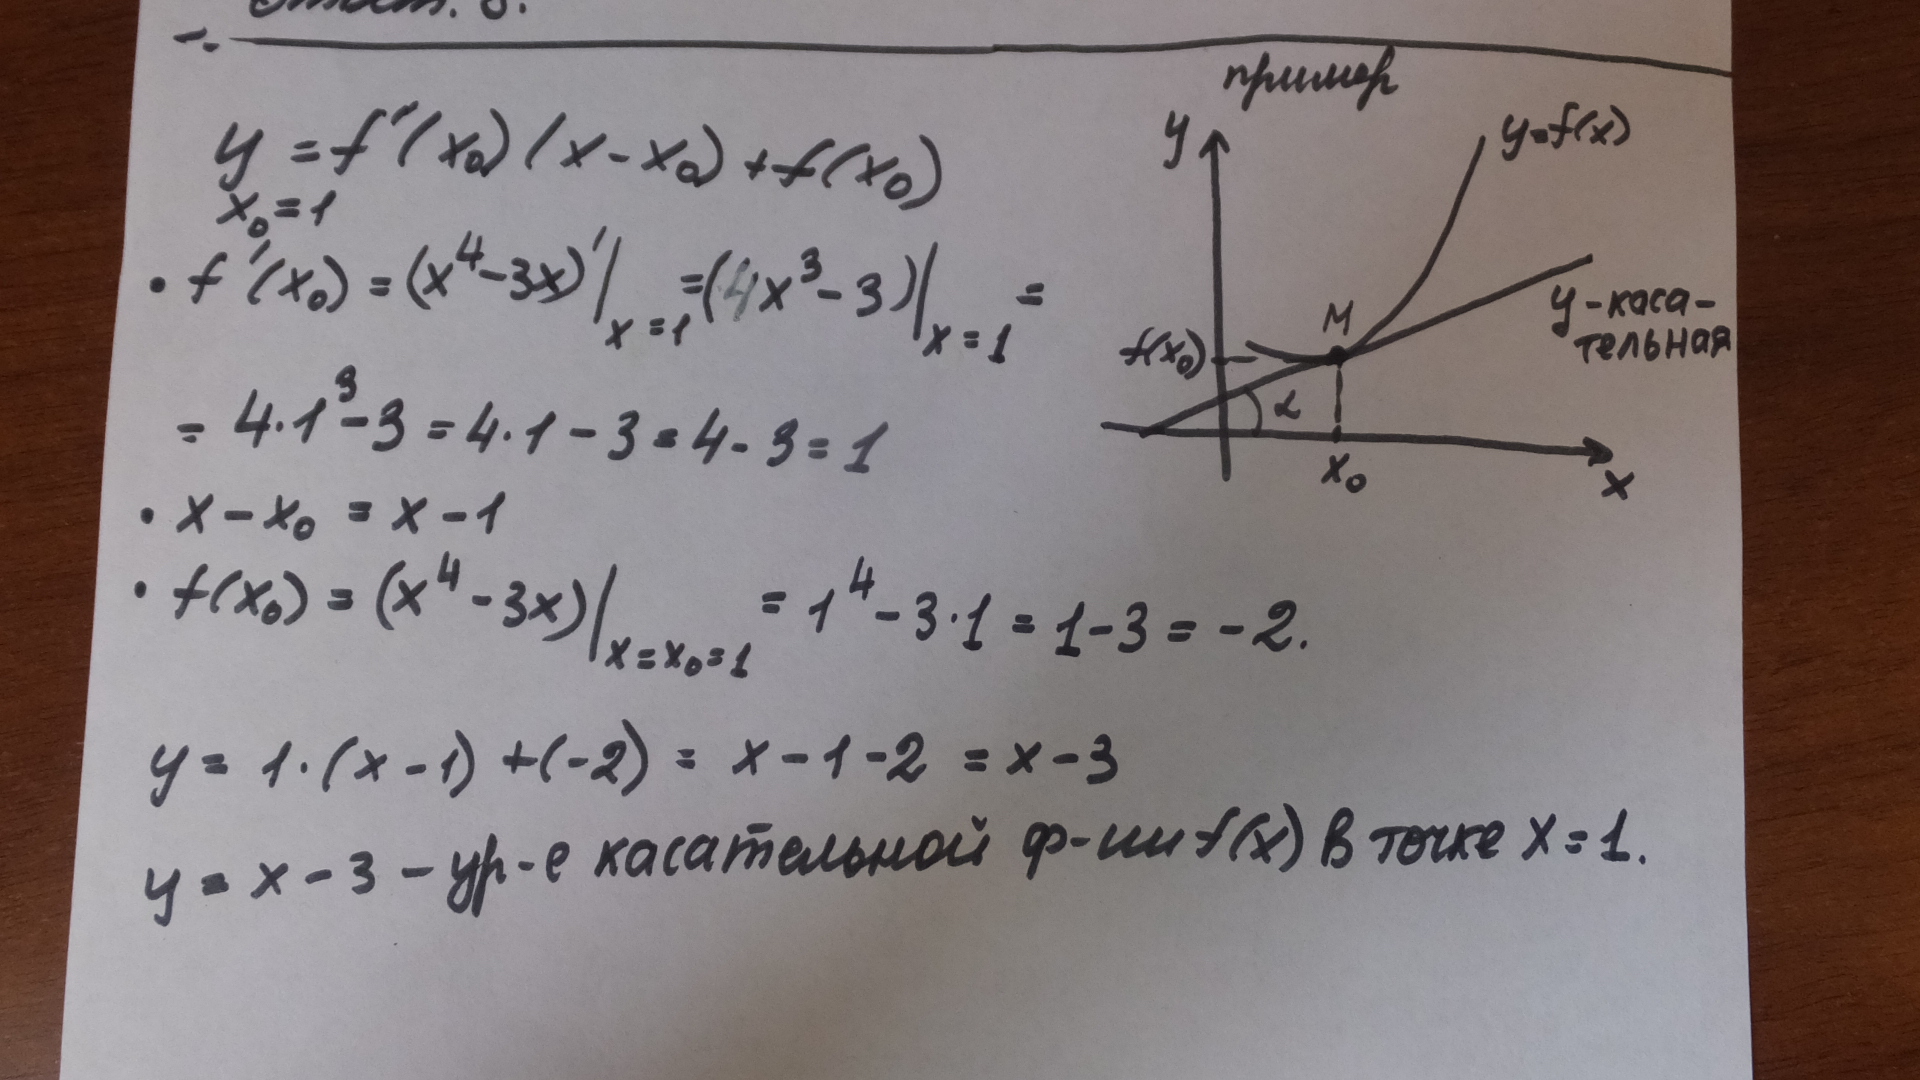 пример
y = f'(x₀)(x - x₀) + f(x₀)
x₀ = 1
• f'(x₀) = (x⁴ - 3x)'|ₓ₌₁ = (4x³ - 3)|ₓ₌₁ =
= 4·1³ - 3 = 4·1 - 3 = 4 - 3 = 1
• x - x₀ = x - 1
• f(x₀) = (x⁴ - 3x)|ₓ₌ₓ₀₌₁ = 1⁴ - 3·1 = 1 - 3 = -2.
y = 1·(x - 1) + (-2) = x - 1 - 2 = x - 3
y = x - 3 - ур-е касательной ф-ии f(x) в точке x = 1.
y
y=f(x)
y - каса-
тельная
M
f(x₀)
α
x₀
x